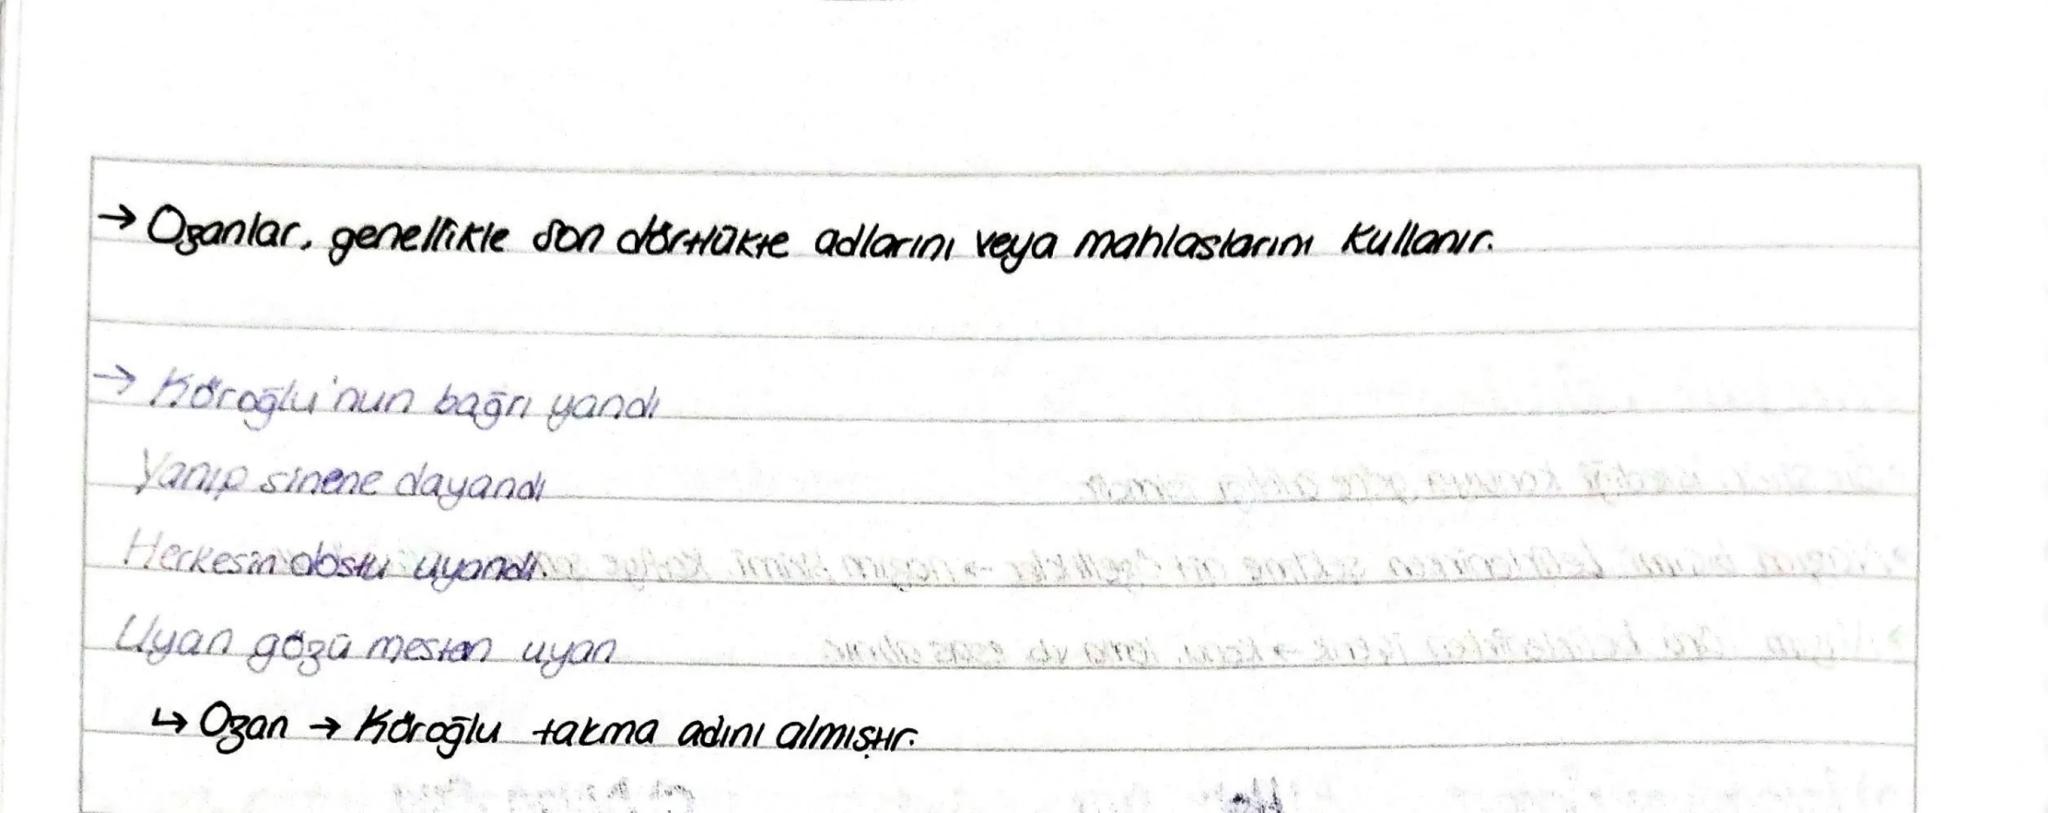 → Ozanlar, genellikle son dörtlükte adlarını veya mahlaslarını kullanır.
→ Köroğlu'nun bağrı yandı
Yanıp sinene dayandı
Herkesin dostu uyandı
Uyan gözü mesten uyan
↳ Ozan → Köroğlu takma adını almıştır.